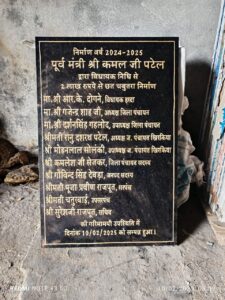 निर्माण वर्ष 2024-2025
पूर्व मंत्री श्री कमल जी पटेल
द्वारा विधायक निधि से
2 लाख रुपये से छत चबुतरा निर्माण
मा.श्री आर.के. दोगने, विधायक हरदा
मा.श्री गजेन्द्र शाह जी, अध्यक्ष जिला पंचायत
मा.श्री दर्शनसिंह गहलोद, उपाध्यक्ष जिला पंचायत
श्रीमती रानु दशरथ पटेल, अध्यक्ष ज. पंचायत खिरकिया
श्री मोहनलाल सोलंकी, उपाध्यक्ष ज. पंचायत खिरकिया
श्री कमलेश जी सेजकर, जिला पंचायत सदस्य
श्री गोविन्द सिंह देवड़ा, जनपद सदस्य
श्रीमती पूजा प्रवीण राजपूत, सरपंच
श्रीमती चतुरबाई, उपसरपंच
श्री सुरेशजी राजपूत, सचिव
की गरिमामयी उपस्थिति में
दिनांक 10/02/2025 को सम्पन्न हुआ।
REDMI NOTE